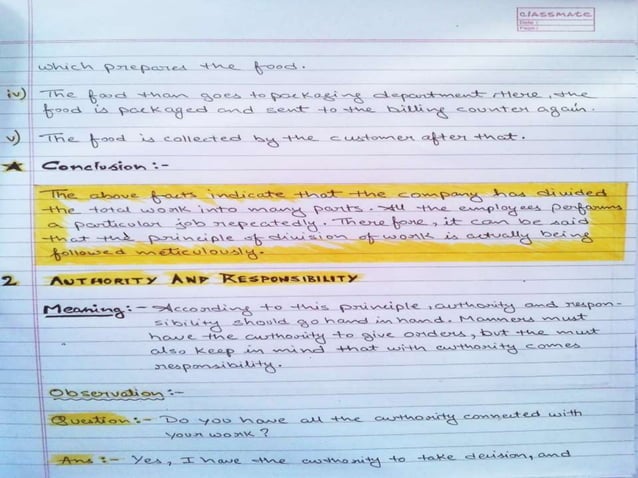 classmate
Date :
Page :
which prepares the food.
iv) The food than goes to packaging department. Here, the
food is packaged and sent to the billing counter again.
v) The food is collected by the customer after that.
★ Conclusion :-
The above facts indicate that the company has divided
the total work into many parts. All the employees performs
a particular job repeatedly. Therefore, it can be said
that the principle of division of work is actually being
followed meticulously.
2 AUTHORITY AND RESPONSIBILITY
Meaning :- According to this principle, authority and respon-
sibility should go hand in hand. Manners must
have the authority to give orders, but the must
also keep in mind that with authority comes
responsibility.
Observation :-
Question :- Do you have all the authority connected with
your work ?
Ans :- Yes, I have the authority to take decision, and